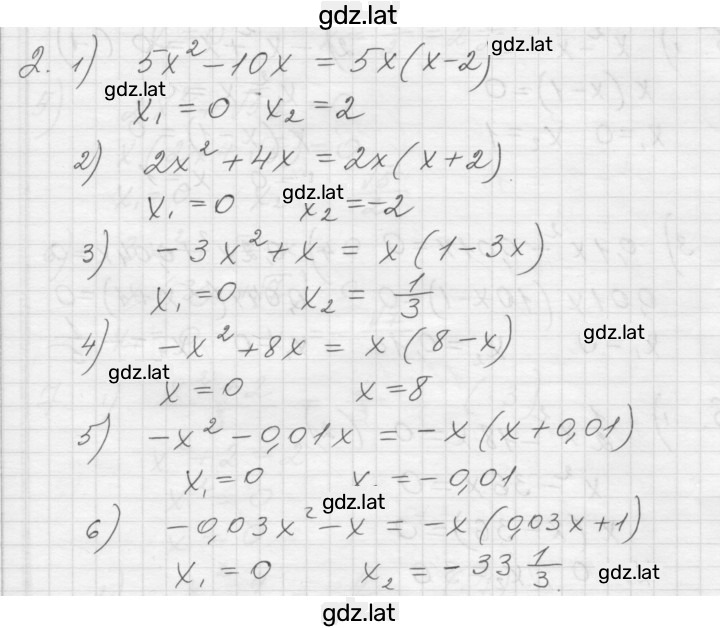 gdz.lat
2. 1) 5x² - 10x = 5x(x-2) gdz.lat
gdz.lat
x₁ = 0 x₂ = 2
2) 2x² + 4x = 2x(x+2)
gdz.lat
x₁ = 0 x₂ = -2
3) -3x² + x = x(1-3x)
x₁ = 0 x₂ = 1/3
4) -x² + 8x = x(8-x) gdz.lat
gdz.lat
x = 0 x = 8
5) -x² - 0,01x = -x(x+0,01)
x₁ = 0 x₂ = -0,01
gdz.lat
6) -0,03x² - x = -x(0,03x+1)
x₁ = 0 x₂ = -33 1/3 gdz.lat
gdz.lat